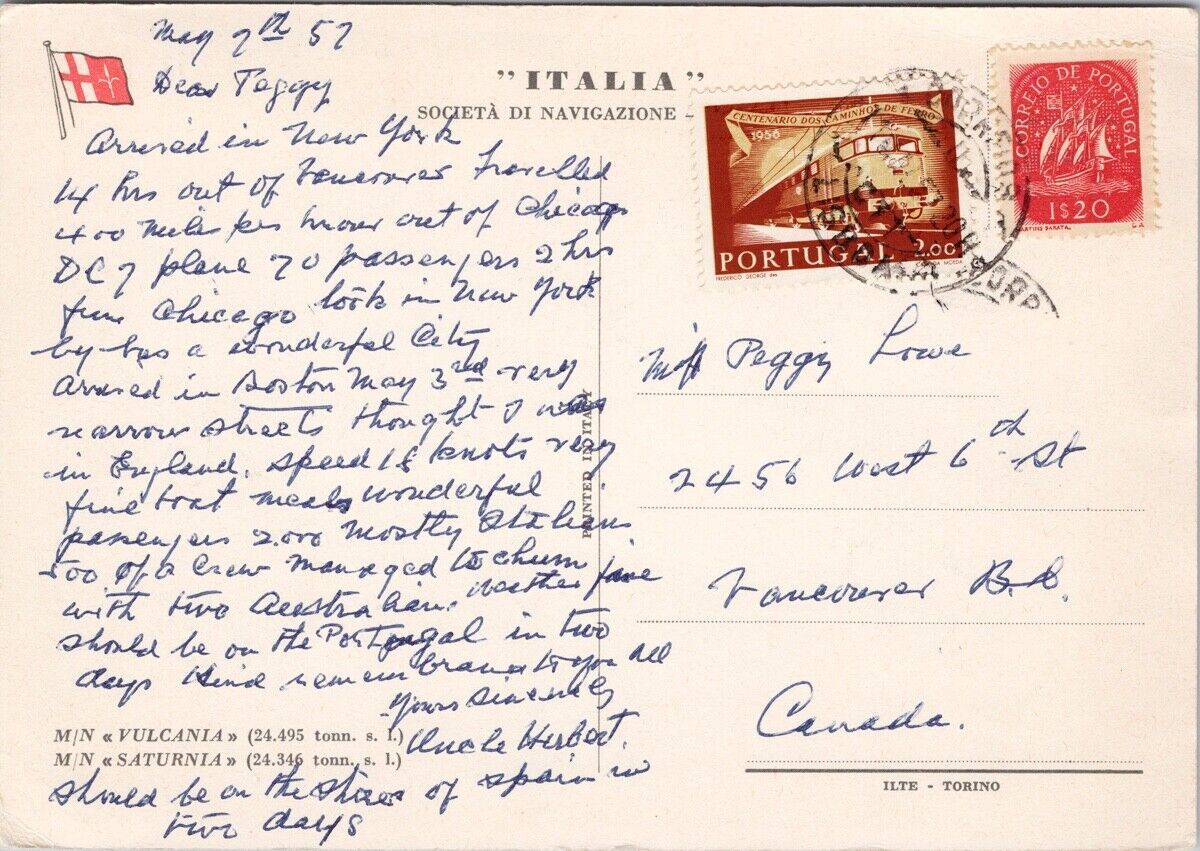 May 7th 57
Dear Peggy
Arrived in New York
14 hrs out of Vancouver travelled
400 miles per hour out of Chicago
DC 7 plane 70 passengers 2 hrs
from Chicago look in New York
by bus a wonderful City
Arrived in Boston May 3rd very
narrow streets thought I was
in England. speed 18 knots very
fine boat meals wonderful
passengers 2.000 mostly Italians
500 of a crew managed to chum
with two Australians weather fine
should be on the Portugal in two
days Kind remembrance to you all
Yours Sincerely
Uncle Herbert.
should be on the shores of Spain in
two days
"ITALIA"
SOCIETÀ DI NAVIGAZIONE -
M/N « VULCANIA » (24.495 tonn. s. l.)
M/N « SATURNIA » (24.346 tonn. s. l.)
PRINTED IN ITALY
CENTENARIO DOS CAMINHOS DE FERRO
1956
PORTUGAL 2.00
FREDERICO GEORGE des. MOEDA
CORREIO DE PORTUGAL
1$20
MARTINS BARATA.
LISBOA
Miss Peggy Lowe
2456 West 6th St
Vancouver B.C.
Canada.
ILTE - TORINO